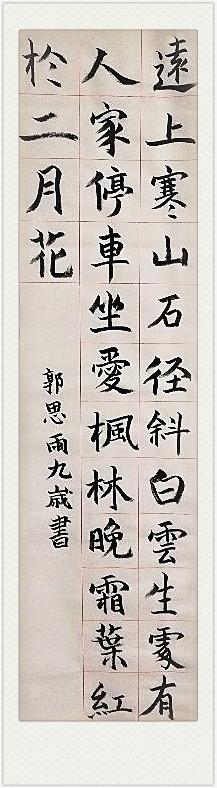 遠上寒山石径斜白雲生處有
人家停車坐愛楓林晚霜葉紅
於二月花
郭思雨九歲書